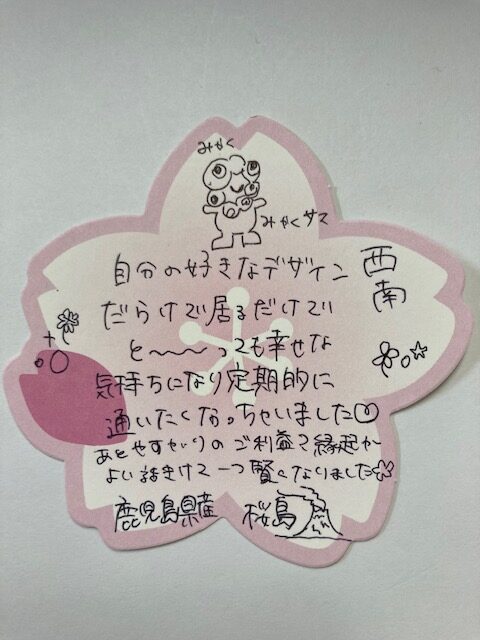 みゃく
みゃくサマ
西南
自分の好きなデザイン
だらけで居るだけで
と〜〜っても幸せな
気持ちになり定期的に
通いたくなっちゃいました
あとやすせりのご利益で縁起が
よい話きけて一つ賢くなりました
鹿児島県産 桜島